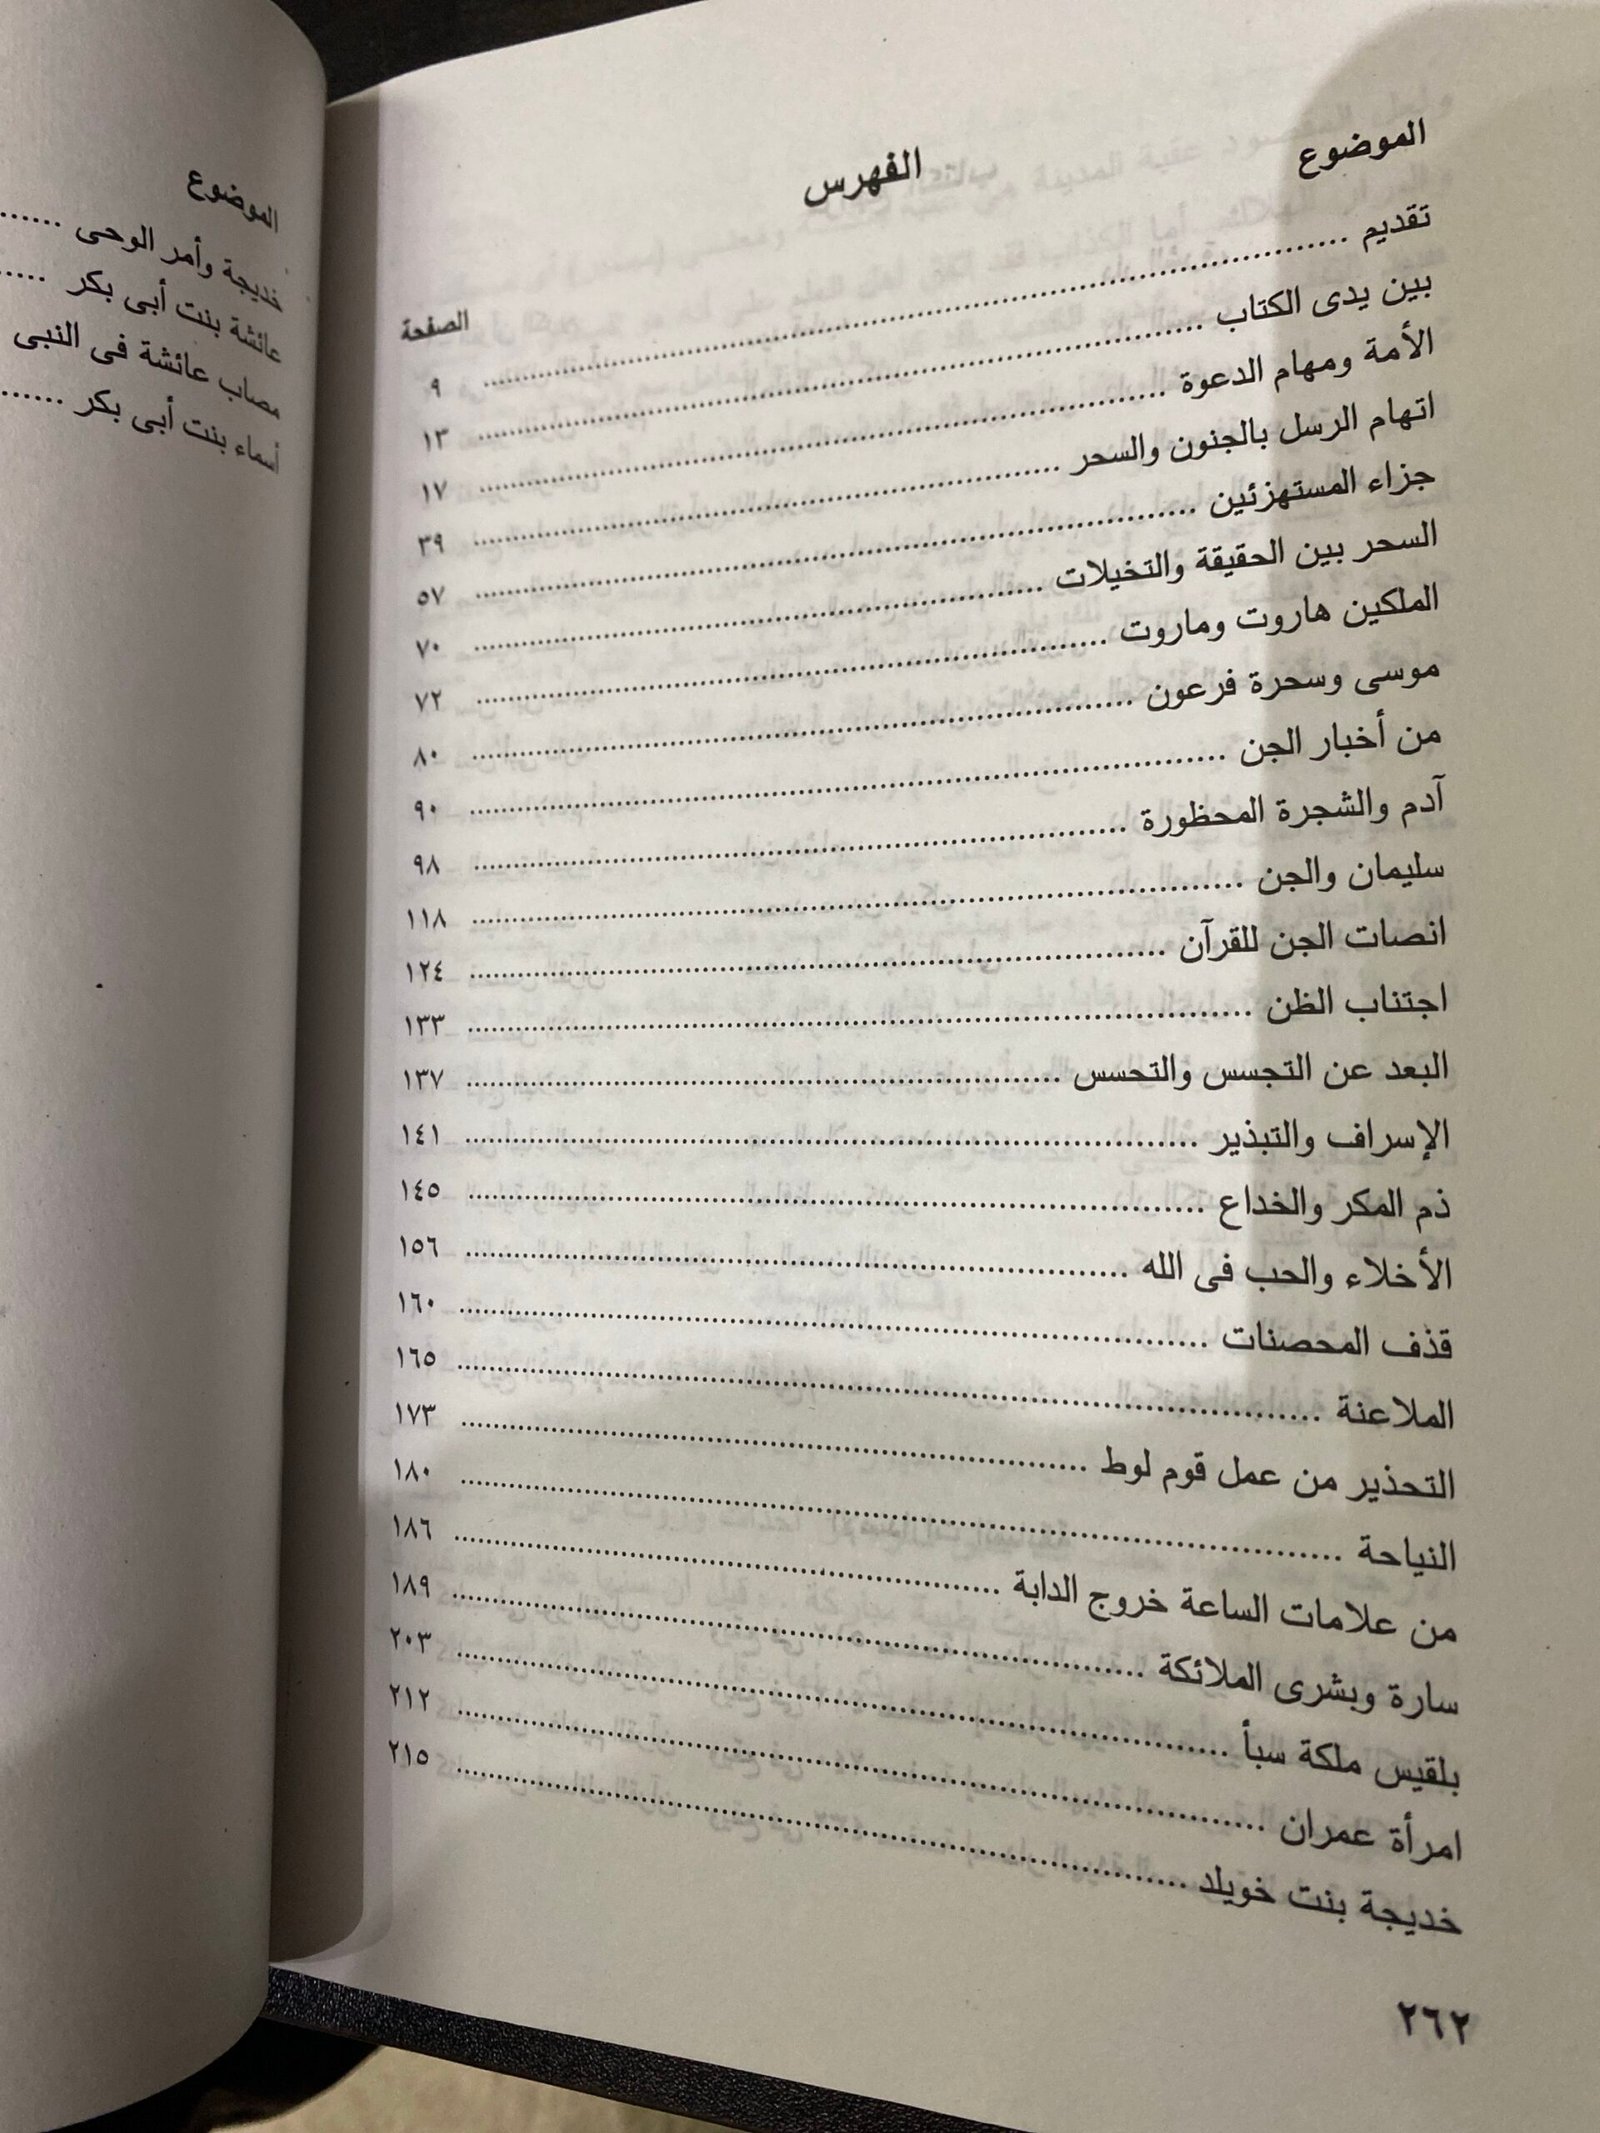 الفهرس
الموضوع
الصفحة
تقديم ........ ٩
بين يدى الكتاب ........ ١٣
الأمة ومهام الدعوة ........ ١٧
اتهام الرسل بالجنون والسحر ........ ٣٩
جزاء المستهزئين ........ ٥٧
السحر بين الحقيقة والتخيلات ........ ٧٠
الملكين هاروت وماروت ........ ٧٢
موسى وسحرة فرعون ........ ٨٠
من أخبار الجن ........ ٩٠
آدم والشجرة المحظورة ........ ٩٨
سليمان والجن ........ ١١٨
انصات الجن للقرآن ........ ١٢٤
اجتناب الظن ........ ١٣٣
البعد عن التجسس والتحسس ........ ١٣٧
الإسراف والتبذير ........ ١٤١
ذم المكر والخداع ........ ١٤٥
الأخلاء والحب فى الله ........ ١٥٦
قذف المحصنات ........ ١٦٠
الملاعنة ........ ١٦٥
التحذير من عمل قوم لوط ........ ١٧٣
النياحة ........ ١٨٠
من علامات الساعة خروج الدابة ........ ١٨٦
سارة وبشرى الملائكة ........ ١٨٩
بلقيس ملكة سبأ ........ ٢٠٣
امرأة عمران ........ ٢١٢
خديجة بنت خويلد ........ ٢١٥
٢٦٢
الموضوع
خديجة وأمر الوحى ......
عائشة بنت أبى بكر ......
مصاب عائشة فى النبى
أسماء بنت أبى بكر ......